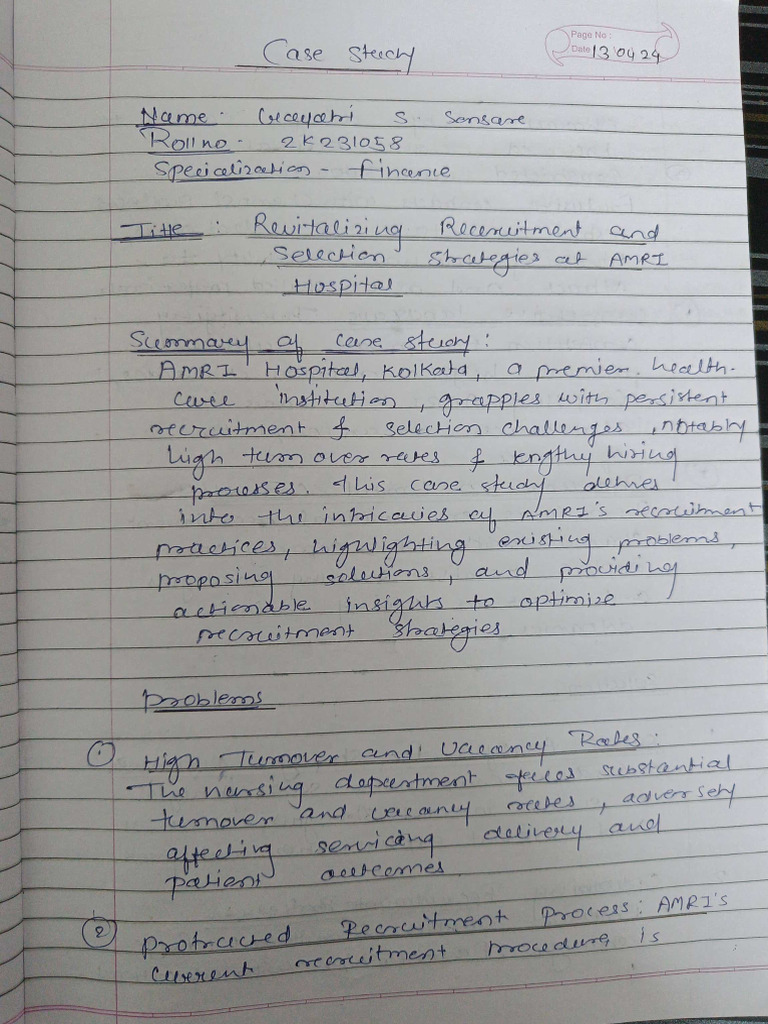 Case Study
Page No :
Date 13 04 24
Name - Gayatri S. Sonsare
Roll no - 2K231058
Specialization - finance
Title : Revitalizing Recruitment and
Selection Strategies at AMRI
Hospital
Summary of case study :
AMRI Hospital, Kolkata, a premier health-
care institution, grapples with persistent
recruitment & selection challenges, notably
high turn over rates & lengthy hiring
processes. This case study delves
into the intricacies of AMRI's recruitment
practices, highlighting existing problems,
proposing solutions, and providing
actionable insights to optimize
recruitment strategies
Problems
① High Turnover and Vacancy Rates :
The nursing department faces substantial
turnover and vacancy rates, adversely
affecting servicing delivery and
patient outcomes.
② Protracted Recruitment Process : AMRI's
current recruitment procedure is